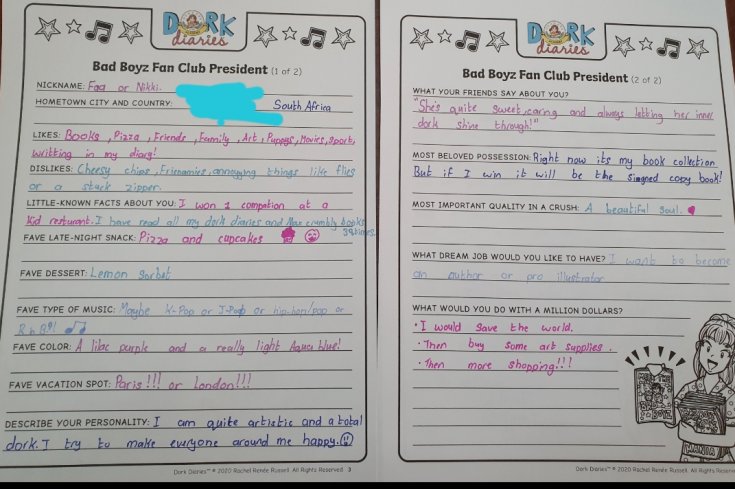 DORK
diaries
Bad Boyz Fan Club President (1 of 2)
NICKNAME: Faa or Nikki.
HOMETOWN CITY AND COUNTRY: South Africa
LIKES: Books, Pizza, Friends, Family, Art, Puppys, Movies, Sport,
writting in my diary!
DISLIKES: Cheesy chips, Frienamies, annoying things like flies
or a stuck zipper.
LITTLE-KNOWN FACTS ABOUT YOU: I won 1 compation at a
Kid resturant. I have read all my dork diaries and Max crumbly books
39 times.
FAVE LATE-NIGHT SNACK: Pizza and cupcakes
FAVE DESSERT: Lemon Sorbet
FAVE TYPE OF MUSIC: Maybe K-Pop or J-Pop or hip-hop/pop or
R n B!
FAVE COLOR: A lilac purple and a really light Aqua blue!
FAVE VACATION SPOT: Paris!!! or London!!!
DESCRIBE YOUR PERSONALITY: I am quite artistic and a total
dork. I try to make everyone around me happy.
Dork Diaries™ © 2020 Rachel Renée Russell. All Rights Reserved. 3
DORK
diaries
Bad Boyz Fan Club President (2 of 2)
WHAT YOUR FRIENDS SAY ABOUT YOU?
"She's quite sweet, caring and always letting her inner
dork shine through!"
MOST BELOVED POSSESSION: Right now its my book collection
But if I win it will be the signed copy book!
MOST IMPORTANT QUALITY IN A CRUSH: A beautiful soul.
WHAT DREAM JOB WOULD YOU LIKE TO HAVE? I want to become
an author or pro illustrator
WHAT WOULD YOU DO WITH A MILLION DOLLARS?
• I would save the world.
• Then buy some art supplies.
• Then more shopping!!!
BAD
BOYZ
MANIA
Dork Diaries™ © 2020 Rachel Renée Russell. All Rights Reserved.